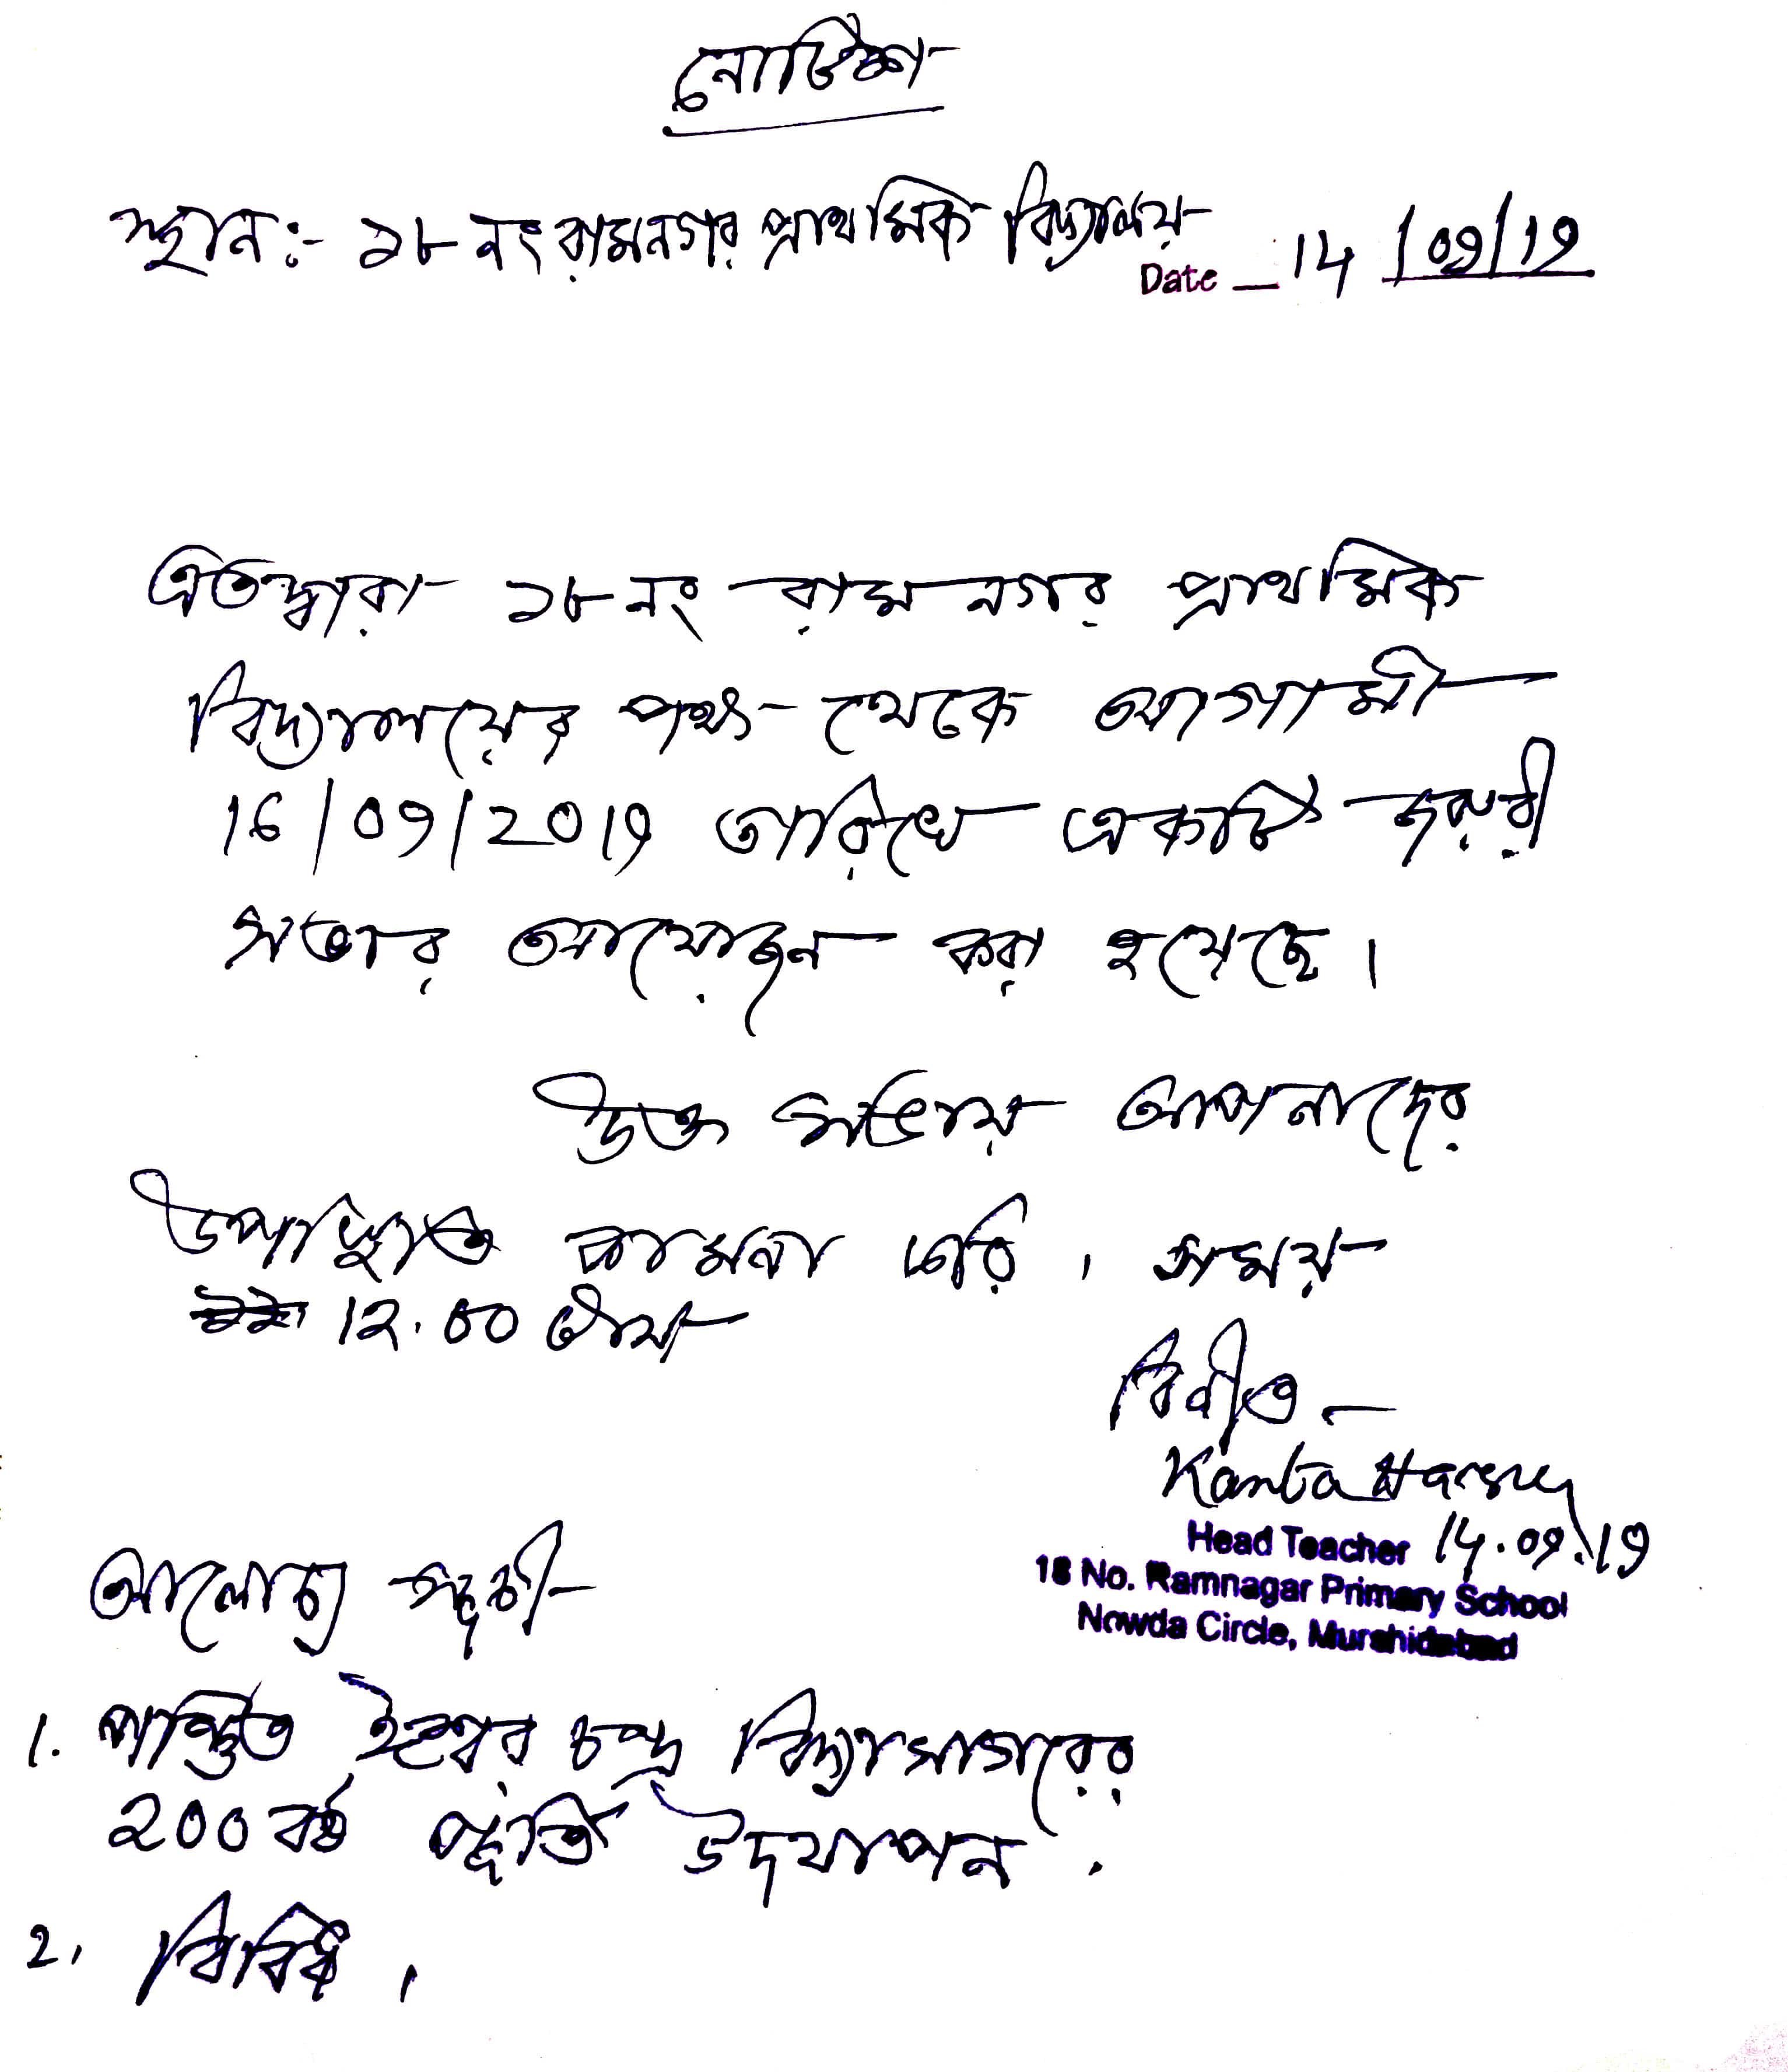 নোটিশ
স্থান:- ১৮ নং রামনগর প্রাথমিক বিদ্যালয়
Date - 14/09/19
এতদ্বারা ১৮ নং রামনগর প্রাথমিক
বিদ্যালয়ের পক্ষ থেকে আগামী
16/09/2019 তারিখে একটি জরুরী
সভার আয়োজন করা হয়েছে।
উক্ত সভায় আপনাদের
উপস্থিতি কামনা করি। সময়
12.00 টায়
বিনীত -
Kanta
Head Teacher 14.09.19
18 No. Ramnagar Primary School
Nowda Circle, Murshidabad
আলোচ্য সূচী
1. পণ্ডিত ঈশ্বর চন্দ্র বিদ্যাসাগরের
200 বর্ষ পূর্তি উদযাপন.
2. বিবিধ।